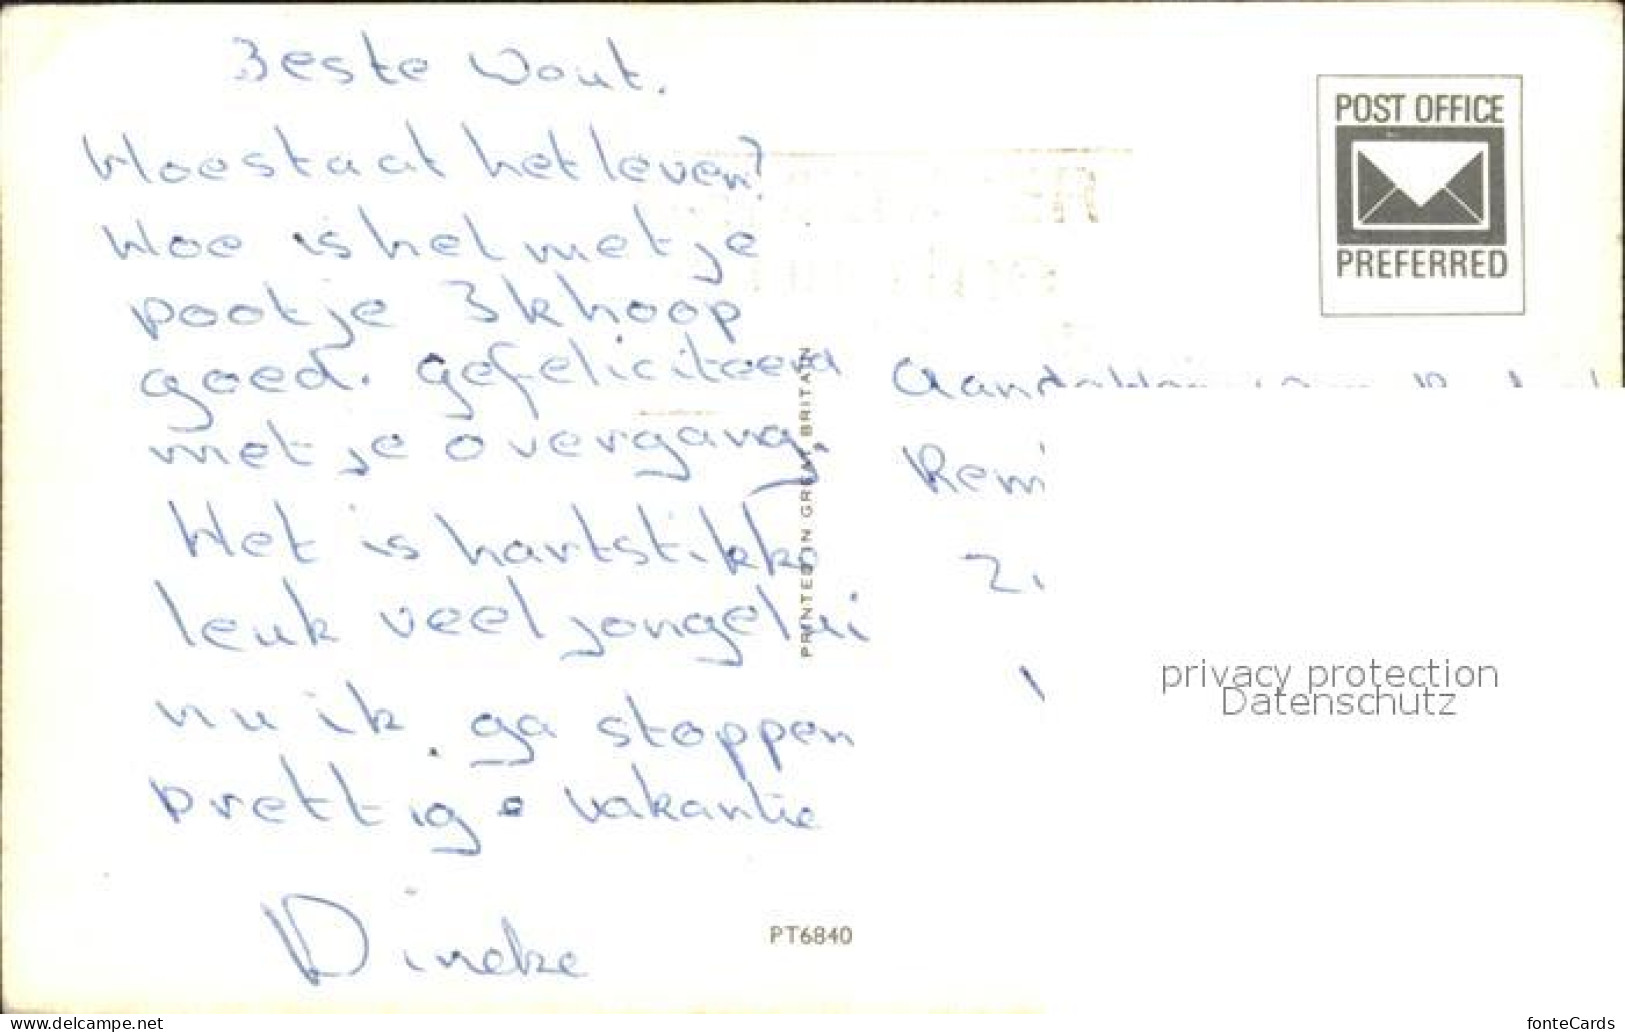 Beste Wout.
Hoe staat het leven?
Hoe is het met je
pootje Ik hoop
goed. gefeliciteerd
met je overgang,
Het is hartstikke
leuk veel jongelui
nu ik ga stoppen
prettig e vakantie
Dineke
PRINTED IN GREAT BRITAIN
PT6840
POST OFFICE
PREFERRED
Aan
privacy protection
Datenschutz
www.delcampe.net
fonteCards